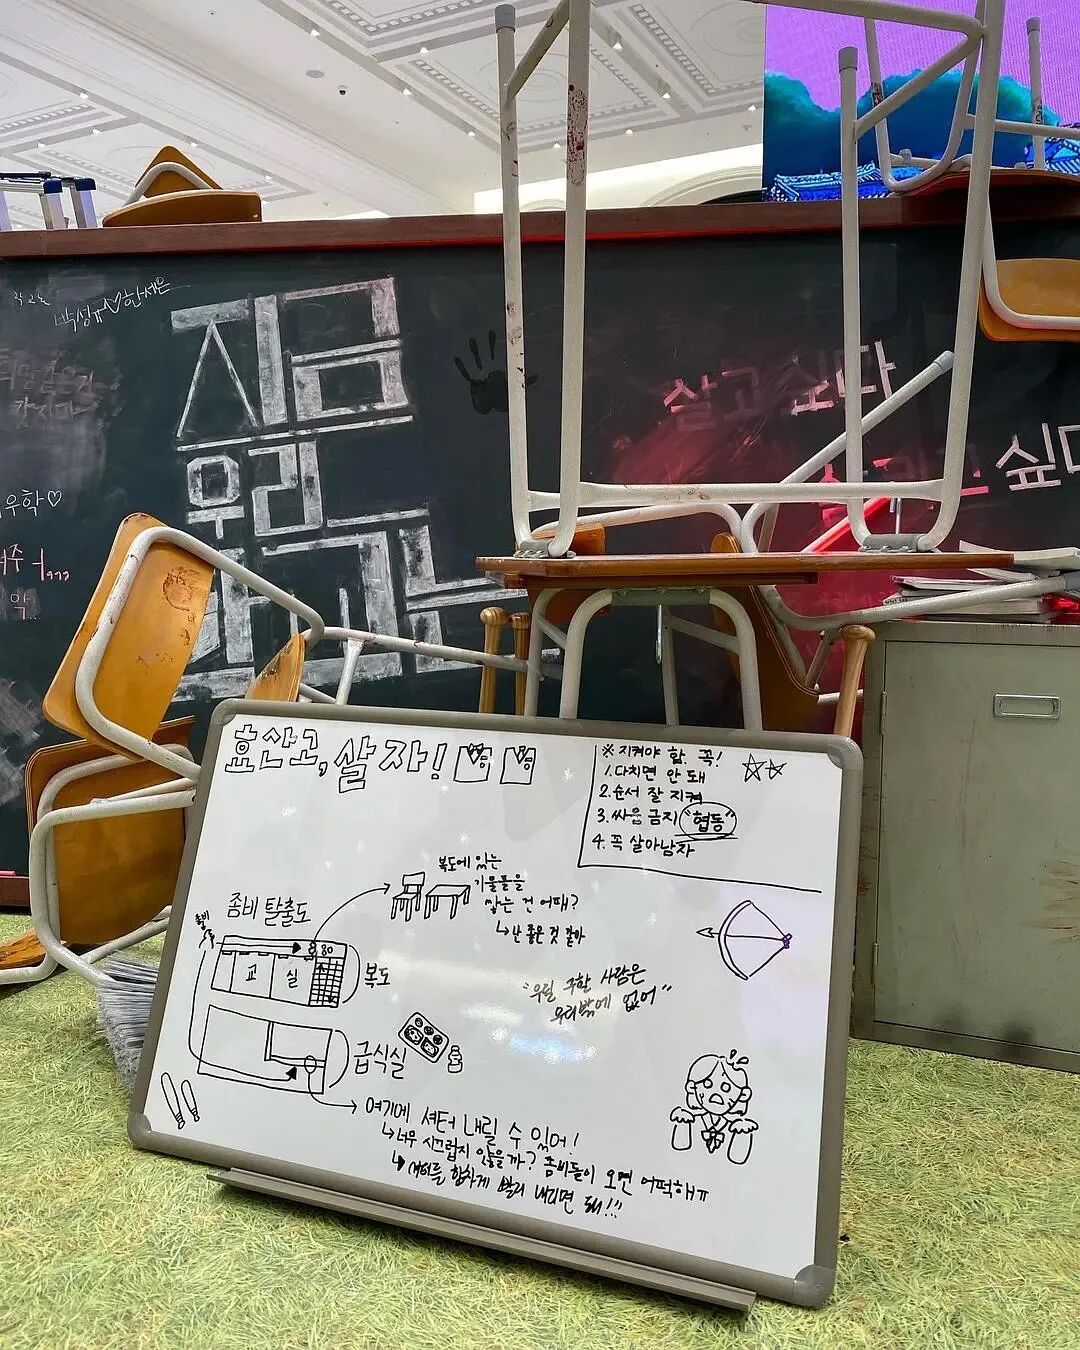 박성규♡한세은
지금
우리
학교는
살고 싶다
싶다
우학♡
악
효산고, 살자!
※ 지켜야 함. 꼭!
1. 다치면 안 돼
2. 순서 잘 지켜
3. 싸움 금지 "협동"
4. 꼭 살아남자
복도에 있는
기물들을
쌓는 건 어때?
↳ 난 좋은 것 같아
좀비 탈출도
좀비
교 실
복도
"우릴 구할 사람은
우리밖에 없어"
급식실
여기에 셔터 내릴 수 있어!
↳ 너무 시끄럽지 않을까? 좀비들이 오면 어떡해ㅠ
↳ 여럿이 합하게 빨리 내리면 돼!!